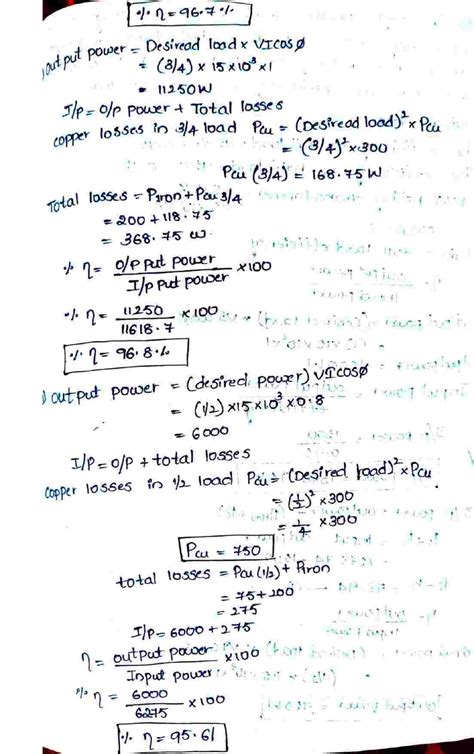 % η = 96.7 %
) output power = Desiread load × VI cosϕ
= (3/4) × 15 × 10³ × 1
= 11250W
I/P = O/P Power + Total losses
copper losses in 3/4 load Pcu = (Desiread load)² × Pcu
= (3/4)² × 300
Pcu (3/4) = 168.75W
Total losses = Piron + Pcu 3/4
= 200 + 118.75
= 368.75 W
% η = O/P put power / I/p put power × 100
% η = 11250 / 11618.7 × 100
% η = 96.8 %
) output power = (desired power) VI cosϕ
= (1/2) × 15 × 10³ × 0.8
= 6000
I/P = O/P + total losses
copper losses in 1/2 load Pcu = (Desired load)² × Pcu
= (1/2)² × 300
= 1/4 × 300
Pcu = 750
total losses = Pcu (1/2) + Piron
= 75 + 200
= 275
I/P = 6000 + 275
η = output power / Input power × 100
% η = 6000 / 6275 × 100
% η = 95.61